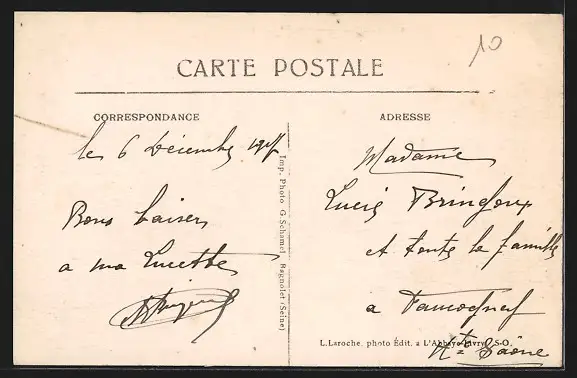 10
CARTE POSTALE
CORRESPONDANCE
le 6 Décembre
Bons baisers
a ma Lucette
Imp. Photo G. Schamel Bagnolet (Seine)
ADRESSE
Madame
Lucie
et toute la famille
a
Hte Saône
L. Laroche. photo Édit. a L'Abbaye-Livry S.-O.